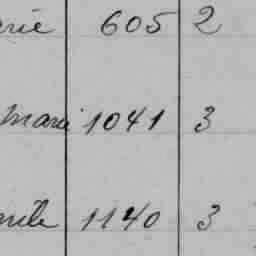 erie 605 2
Marie 1041 3
1140 3